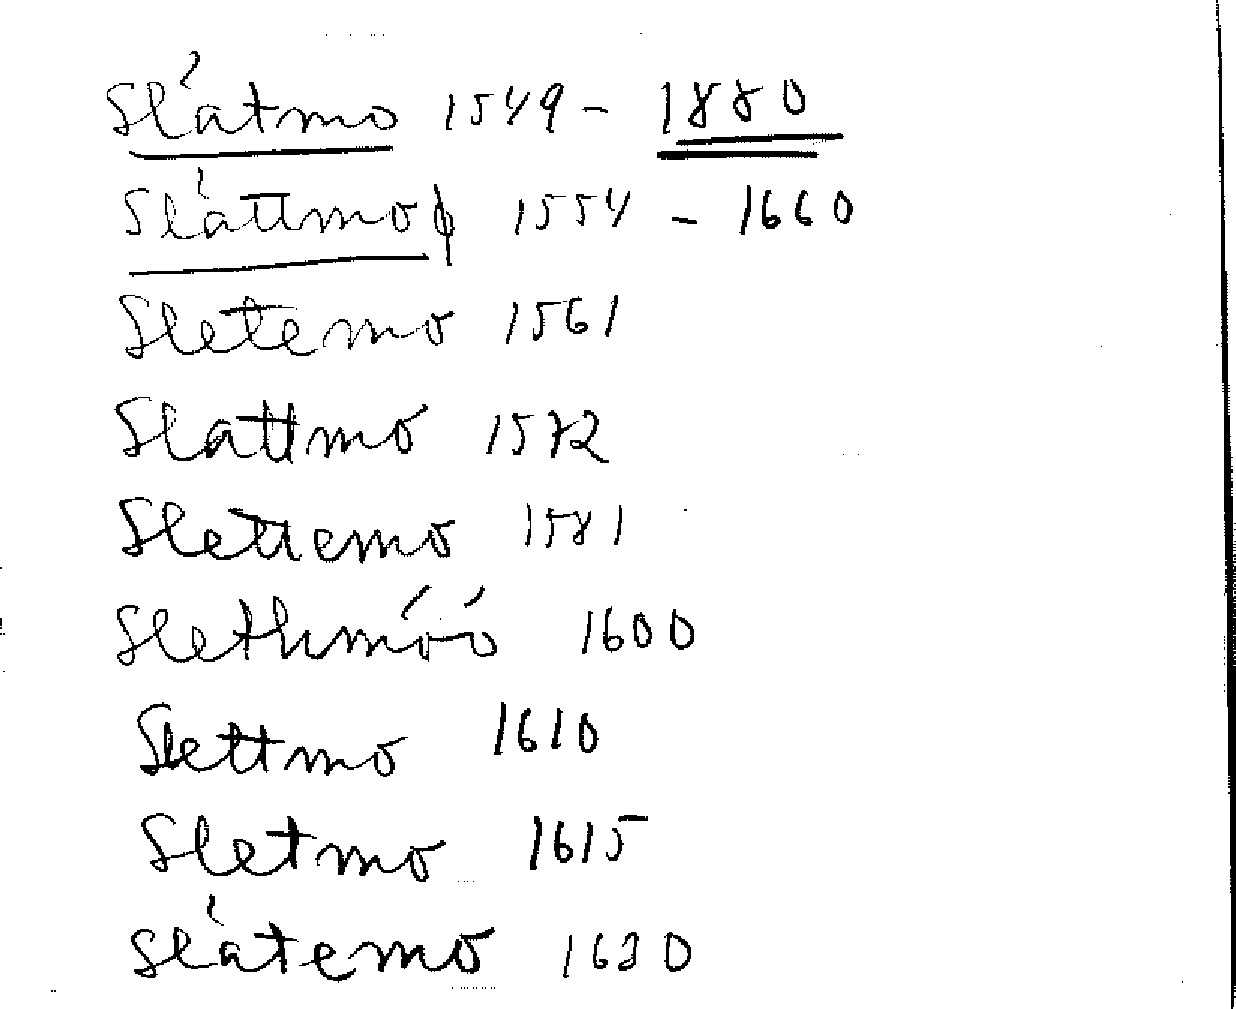 Slåtmo 1549 - 1880
Slåttmo 1554 - 1660
Sletemo 1561
Slattmo 1572
Slettemo 1581
Slethmóó 1600
Slettmo 1610
Sletmo 1615
Slåtemo 1630